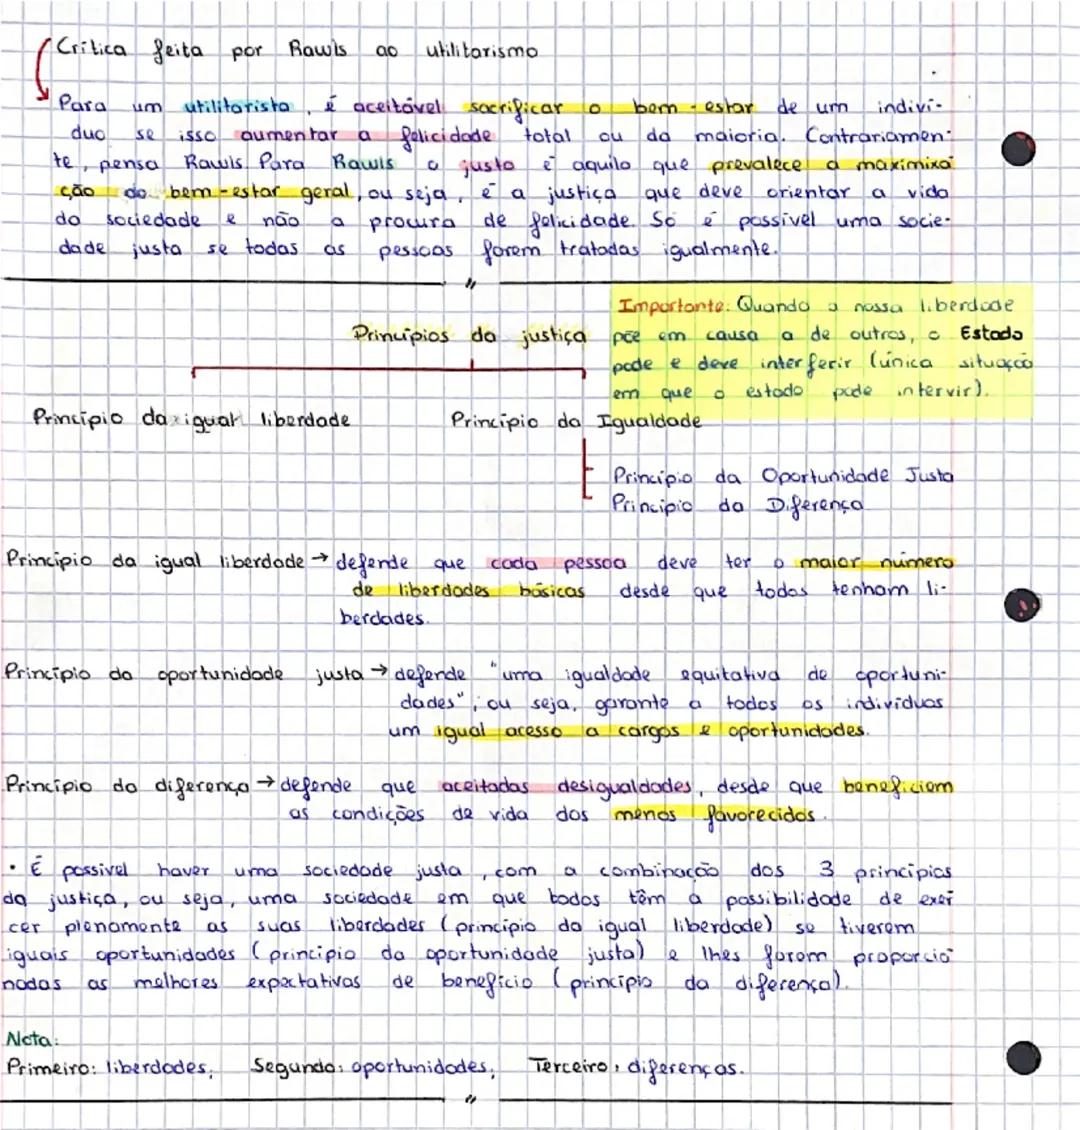 Crítica feita por Rawls ao utilitarismo
Para um utilitarista, é aceitável sacrificar o bem-estar de um indiví-
duo se isso aumentar a felicidade total ou da maioria. Contrariamen-
te, pensa Rawls. Para Rawls o justo é aquilo que prevalece a maximiza
ção do bem-estar geral, ou seja, é a justiça que deve orientar a vida
da sociedade e não a procura de felicidade. Só é possível uma socie-
dade justa se todas as pessoas forem tratadas igualmente.
Importante: Quando a nossa liberdade
põe em causa a de outros, o Estado
pode e deve interferir (única situação
em que o estado pode intervir).
Princípios da justiça
Princípio da igual liberdade Princípio da Igualdade
Princípio da Oportunidade Justa
Princípio da Diferença
Princípio da igual liberdade → defende que cada pessoa deve ter o maior número
de liberdades básicas desde que todos tenham li-
berdades.
Princípio da oportunidade justa → defende "uma igualdade equitativa de oportuni-
dades"; ou seja, garante a todos os indivíduos
um igual acesso a cargos e oportunidades.
Princípio da diferença → defende que aceitadas desigualdades, desde que beneficiem
as condições de vida dos menos favorecidos.
• É possível haver uma sociedade justa, com a combinação dos 3 princípios
da justiça, ou seja, uma sociedade em que todos têm a possibilidade de exer
cer plenamente as suas liberdades (princípio da igual liberdade) se tiverem
iguais oportunidades (princípio da oportunidade justa) e lhes forem proporcio
nadas as melhores expectativas de benefício (princípio da diferença).
Nota:
Primeiro: liberdades; Segundo: oportunidades; Terceiro: diferenças.